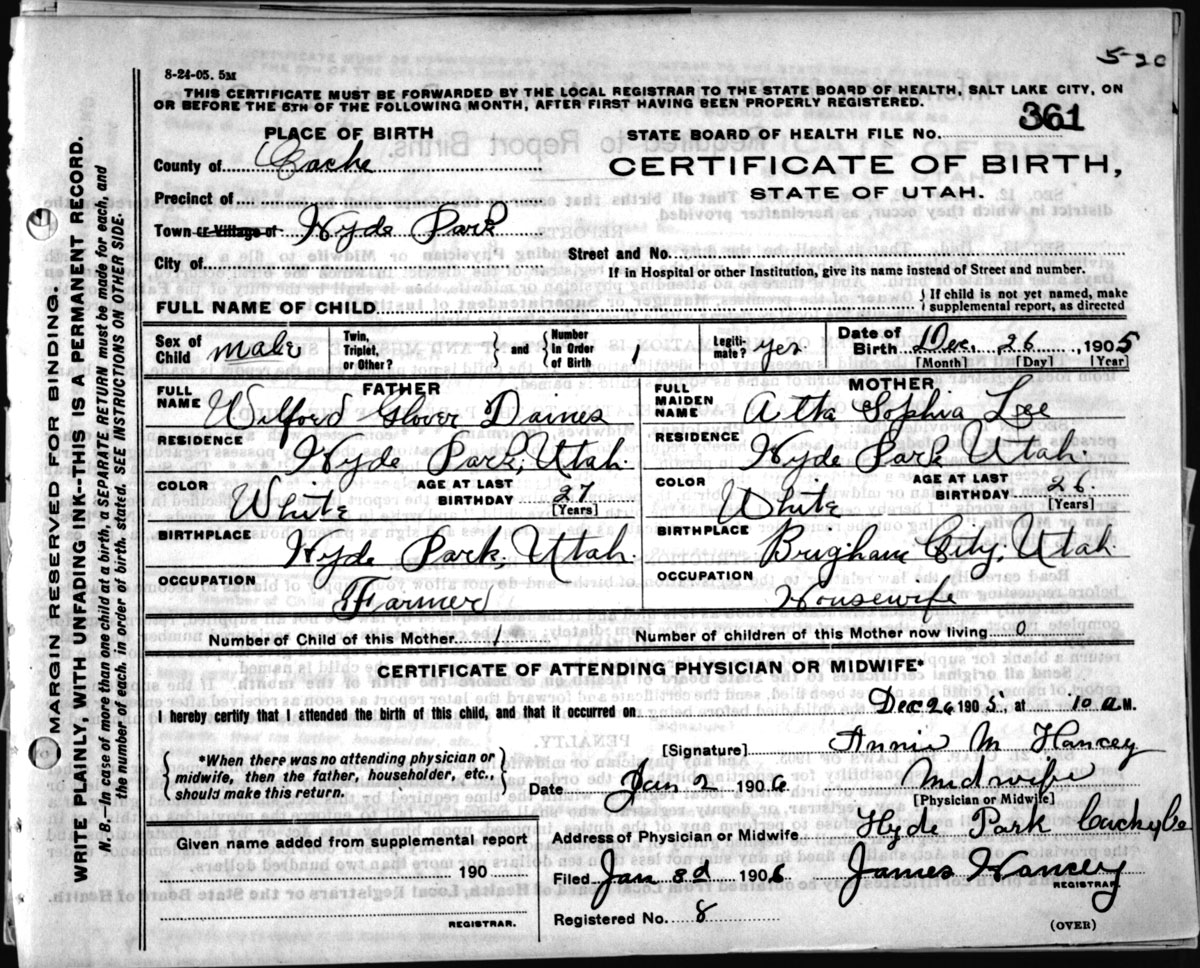 5-20
8-24-05. 5M
THIS CERTIFICATE MUST BE FORWARDED BY THE LOCAL REGISTRAR TO THE STATE BOARD OF HEALTH, SALT LAKE CITY, ON
OR BEFORE THE 5TH OF THE FOLLOWING MONTH, AFTER FIRST HAVING BEEN PROPERLY REGISTERED.
PLACE OF BIRTH
STATE BOARD OF HEALTH FILE NO. 361
County of Cache
CERTIFICATE OF BIRTH,
STATE OF UTAH.
Precinct of
Town or Village of Hyde Park
Street and No.
City of
If in Hospital or other Institution, give its name instead of Street and number.
FULL NAME OF CHILD
} If child is not yet named, make
supplemental report, as directed
Sex of Child male
Twin, Triplet, or Other?
} and { Number in Order of Birth 1
Legitimate? yes
Date of Birth Dec. 26, 1905
[Month] [Day] [Year]
FATHER
FULL NAME Wilford Glover Daines
RESIDENCE Hyde Park, Utah.
COLOR White AGE AT LAST BIRTHDAY 27 [Years]
BIRTHPLACE Hyde Park, Utah.
OCCUPATION Farmer
MOTHER
FULL MAIDEN NAME Atta Sophia Lee
RESIDENCE Hyde Park Utah.
COLOR White AGE AT LAST BIRTHDAY 26. [Years]
BIRTHPLACE Brigham City, Utah.
OCCUPATION Housewife
Number of Child of this Mother 1 Number of children of this Mother now living 0
CERTIFICATE OF ATTENDING PHYSICIAN OR MIDWIFE*
I hereby certify that I attended the birth of this child, and that it occurred on Dec 26 1905, at 10 a M.
{ *When there was no attending physician or
midwife, then the father, householder, etc.,
should make this return. }
[Signature] Annie M Hancey
Date Jan 2 1906 Midwife
[Physician or Midwife]
Given name added from supplemental report
190
REGISTRAR.
Address of Physician or Midwife Hyde Park
Filed Jan 8d 1906 James Hancey
REGISTRAR.
Registered No. 8
(OVER)
MARGIN RESERVED FOR BINDING.
WRITE PLAINLY, WITH UNFADING INK--THIS IS A PERMANENT RECORD.
N. B.—In case of more than one child at a birth, a SEPARATE RETURN must be made for each, and
the number of each, in order of birth, stated. SEE INSTRUCTIONS ON OTHER SIDE.